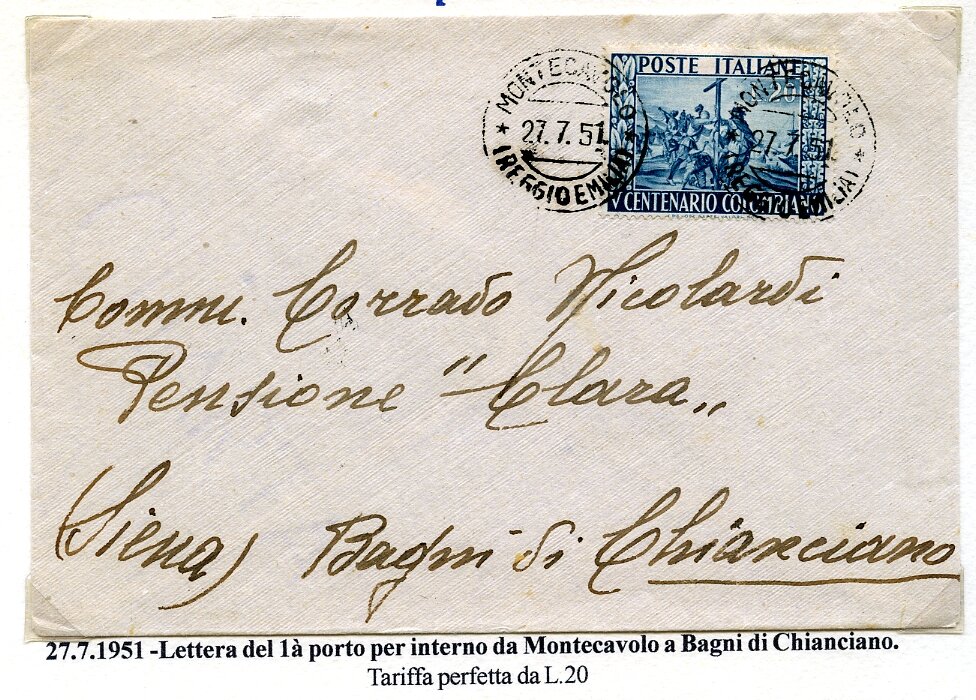 MONTECAVOLO
27.7.51
(REGGIO EMILIA)
POSTE ITALIANE
V CENTENARIO COLOMBIANO
MONTECAVOLO
27.7.51
(REGGIO EMILIA)
Comm. Corrado Nicolardi
Pensione "Clara„
(Siena) Bagni di Chianciano
27.7.1951 -Lettera del 1à porto per interno da Montecavolo a Bagni di Chianciano.
Tariffa perfetta da L.20